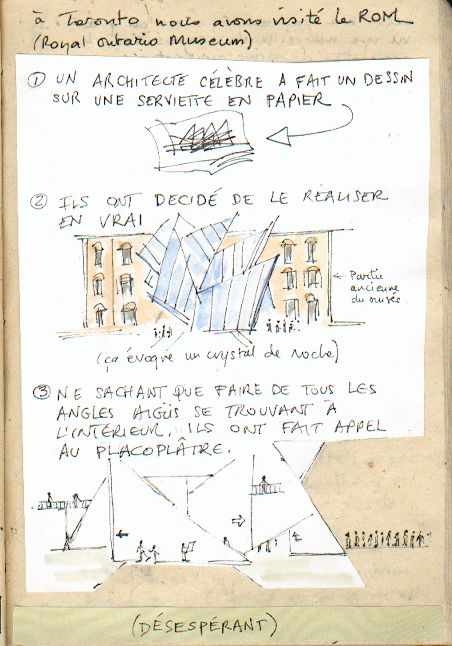 à Toronto nous avons visité le ROM
(Royal Ontario Museum)
① UN ARCHITECTE CÉLÈBRE A FAIT UN DESSIN
SUR UNE SERVIETTE EN PAPIER
② ILS ONT DECIDÉ DE LE RÉALISER
EN VRAI
← Partie
ancienne
du musée
(ça évoque un crystal de roche)
③ NE SACHANT QUE FAIRE DE TOUS LES
ANGLES AIGÜS SE TROUVANT À
L'INTÉRIEUR, ILS ONT FAIT APPEL
AU PLACOPLÂTRE.
(DÉSESPÉRANT)